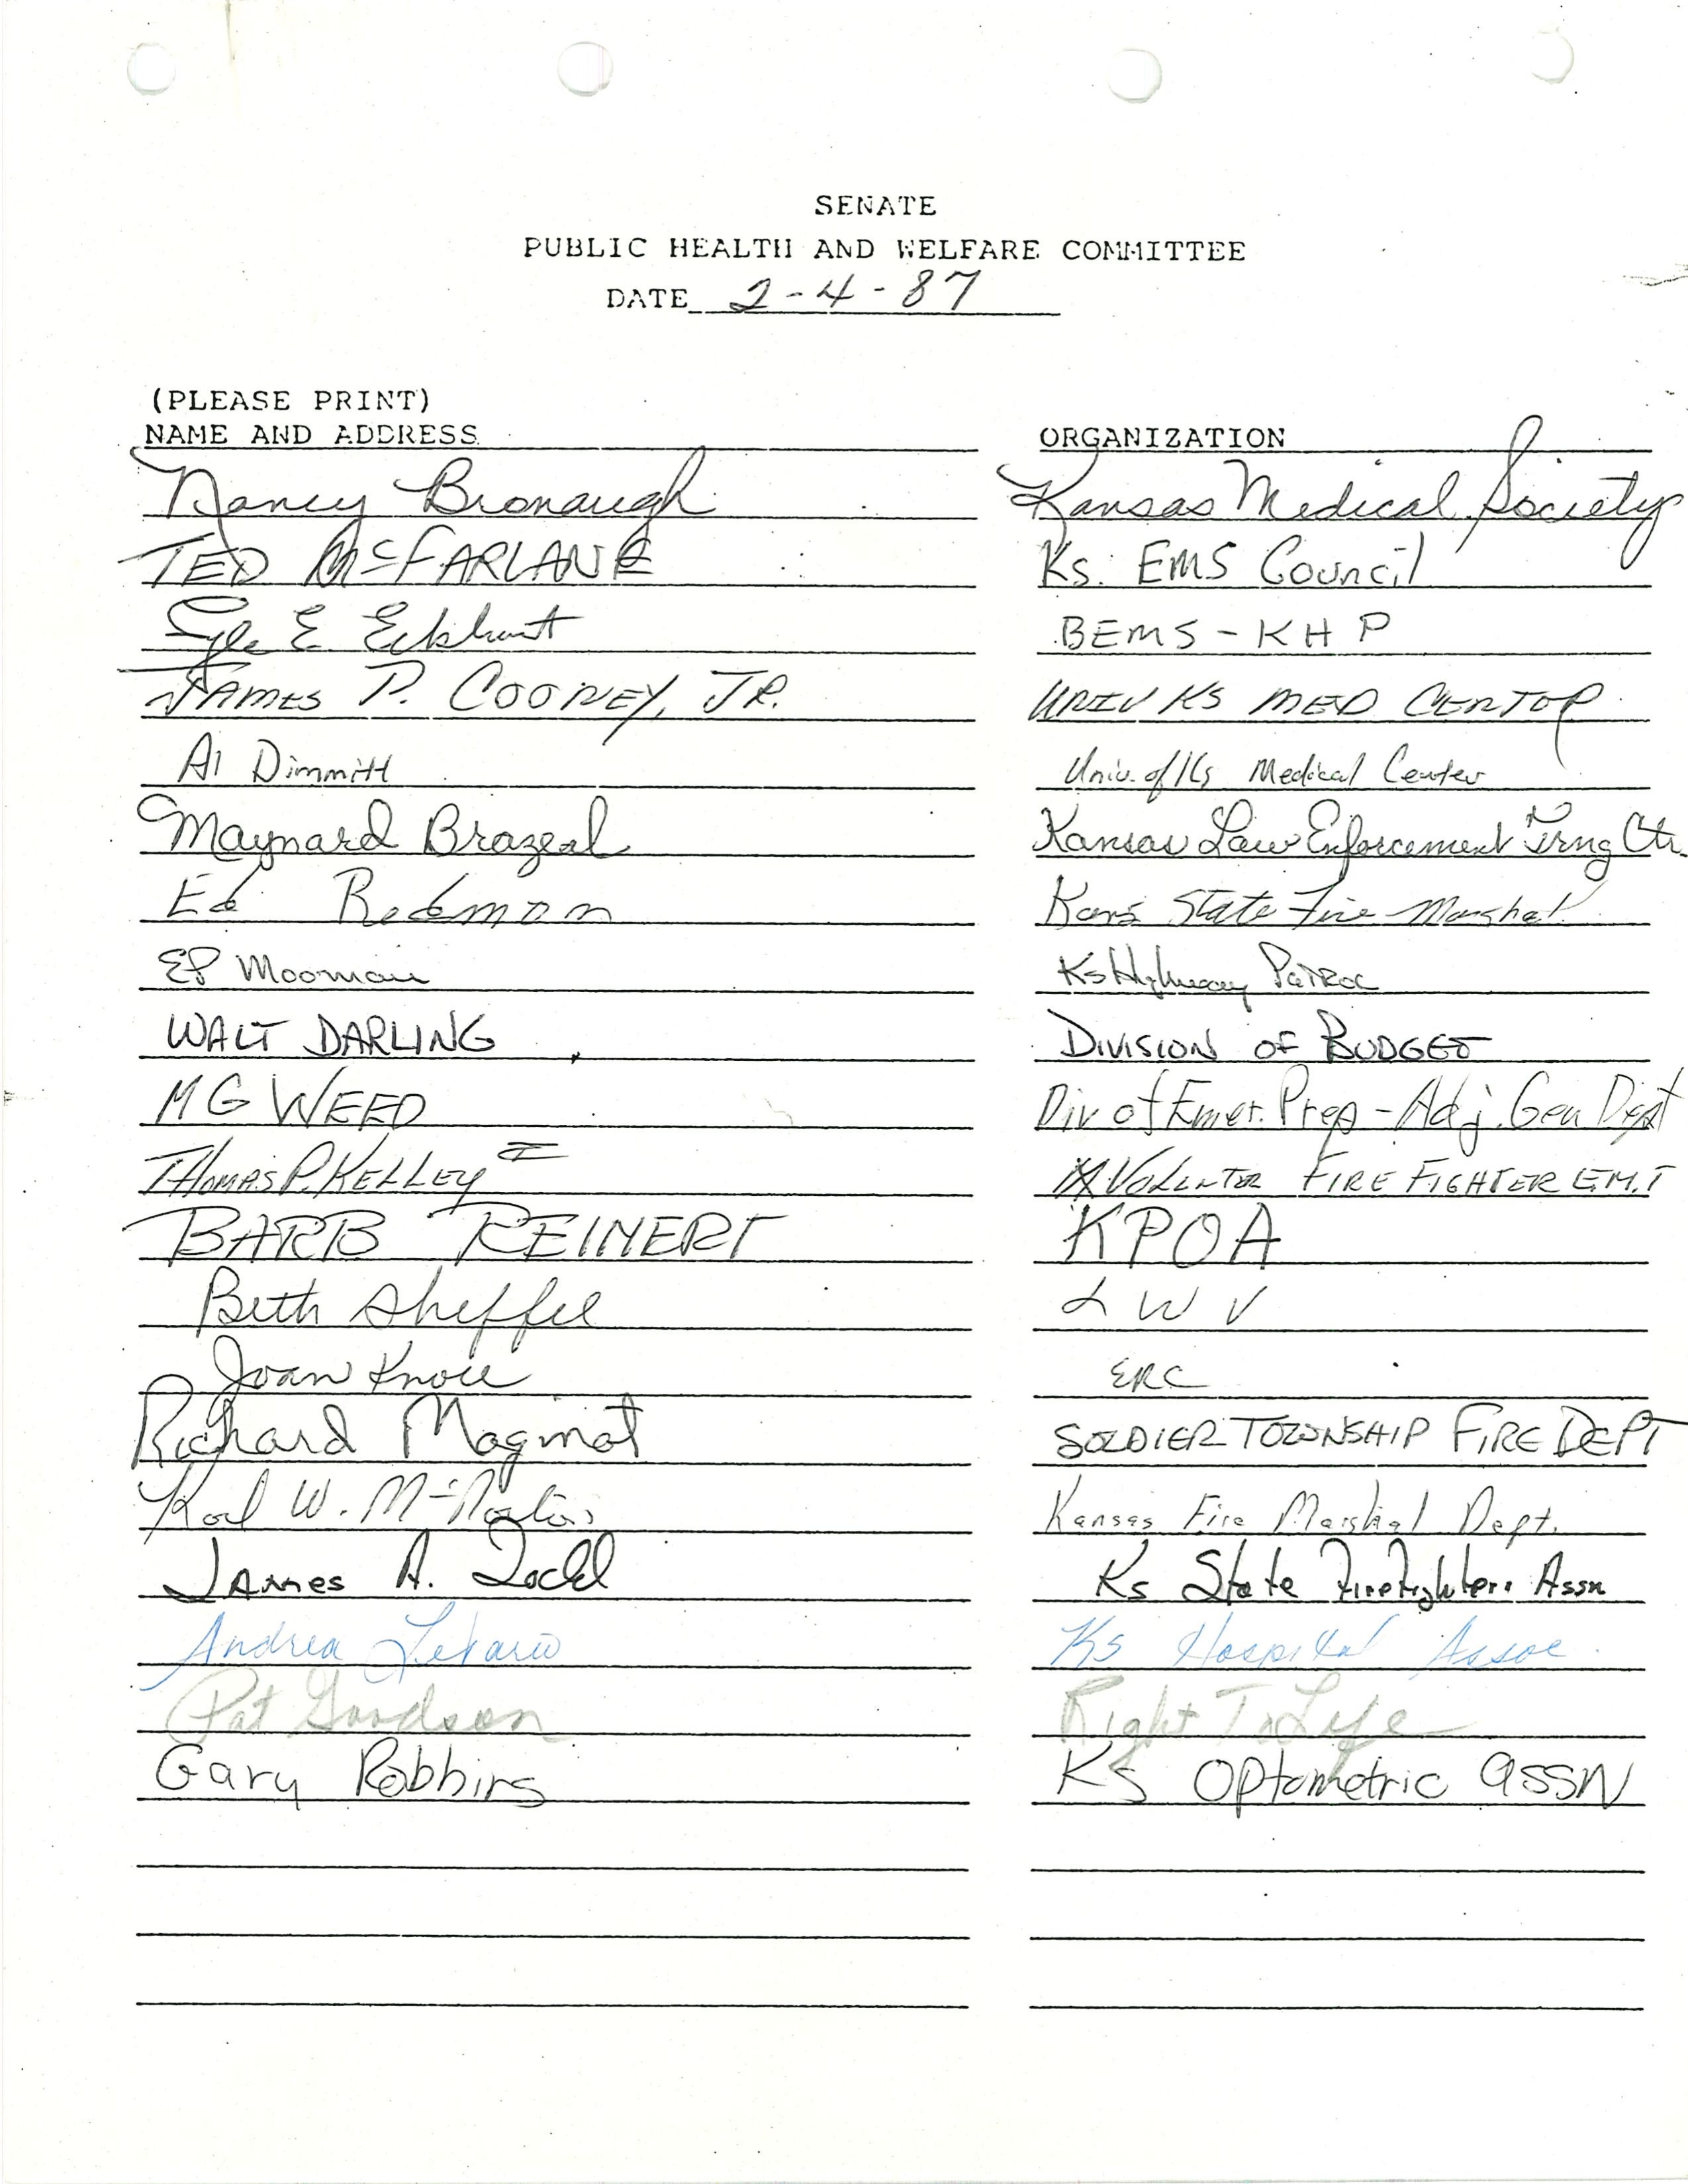 SENATE
PUBLIC HEALTH AND WELFARE COMMITTEE
DATE 2-4-87
(PLEASE PRINT)
NAME AND ADDRESS ORGANIZATION
Nancy Bronaugh Kansas Medical Society
TED McFARLANE Ks. EMS Council
Lyle E. Eckhart BEMS - KHP
JAMES P. COONEY, JR. UNIV KS MED CENTOP
Al Dimmitt Univ. of Ks Medical Center
Maynard Brazeal Kansas Law Enforcement Trng Ctr.
Ed Redmon Kans State Fire Marshal
EP Moomau Ks Highway Patrol
WALT DARLING DIVISION OF BUDGET
MG WEED Div of Emer. Prep - Adj. Gen Dept
THOMAS P. KELLEY II VOLENTER FIRE FIGHTER E.M.T
BARB REINERT KPOA
Beth Sheffel LWV
Joan Knoll ERC
Richard Maginot SOLDIER TOWNSHIP FIRE DEPT
Karl W. Kansas Fire Marshal Dept.
James A. Todd Ks State Firefighters Assn
Andrea Ks Hospital Assoc.
Pat Goodson Right To Life
Gary Robbins Ks Optometric assn